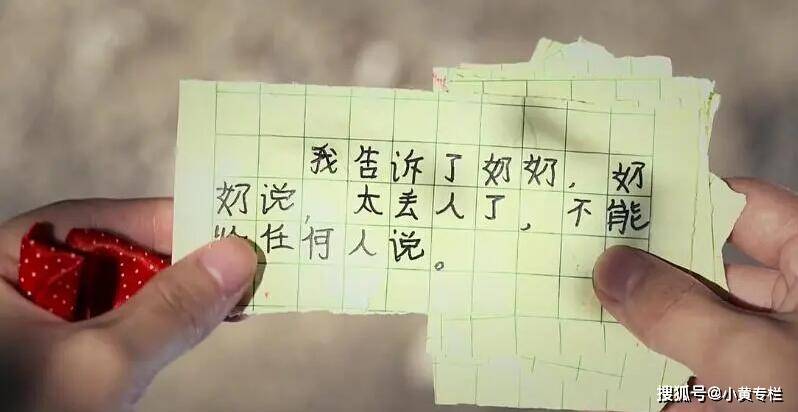 我告诉了奶奶，奶
奶说，太丢人了，不能
给任何人说。
搜狐号@小黄专栏